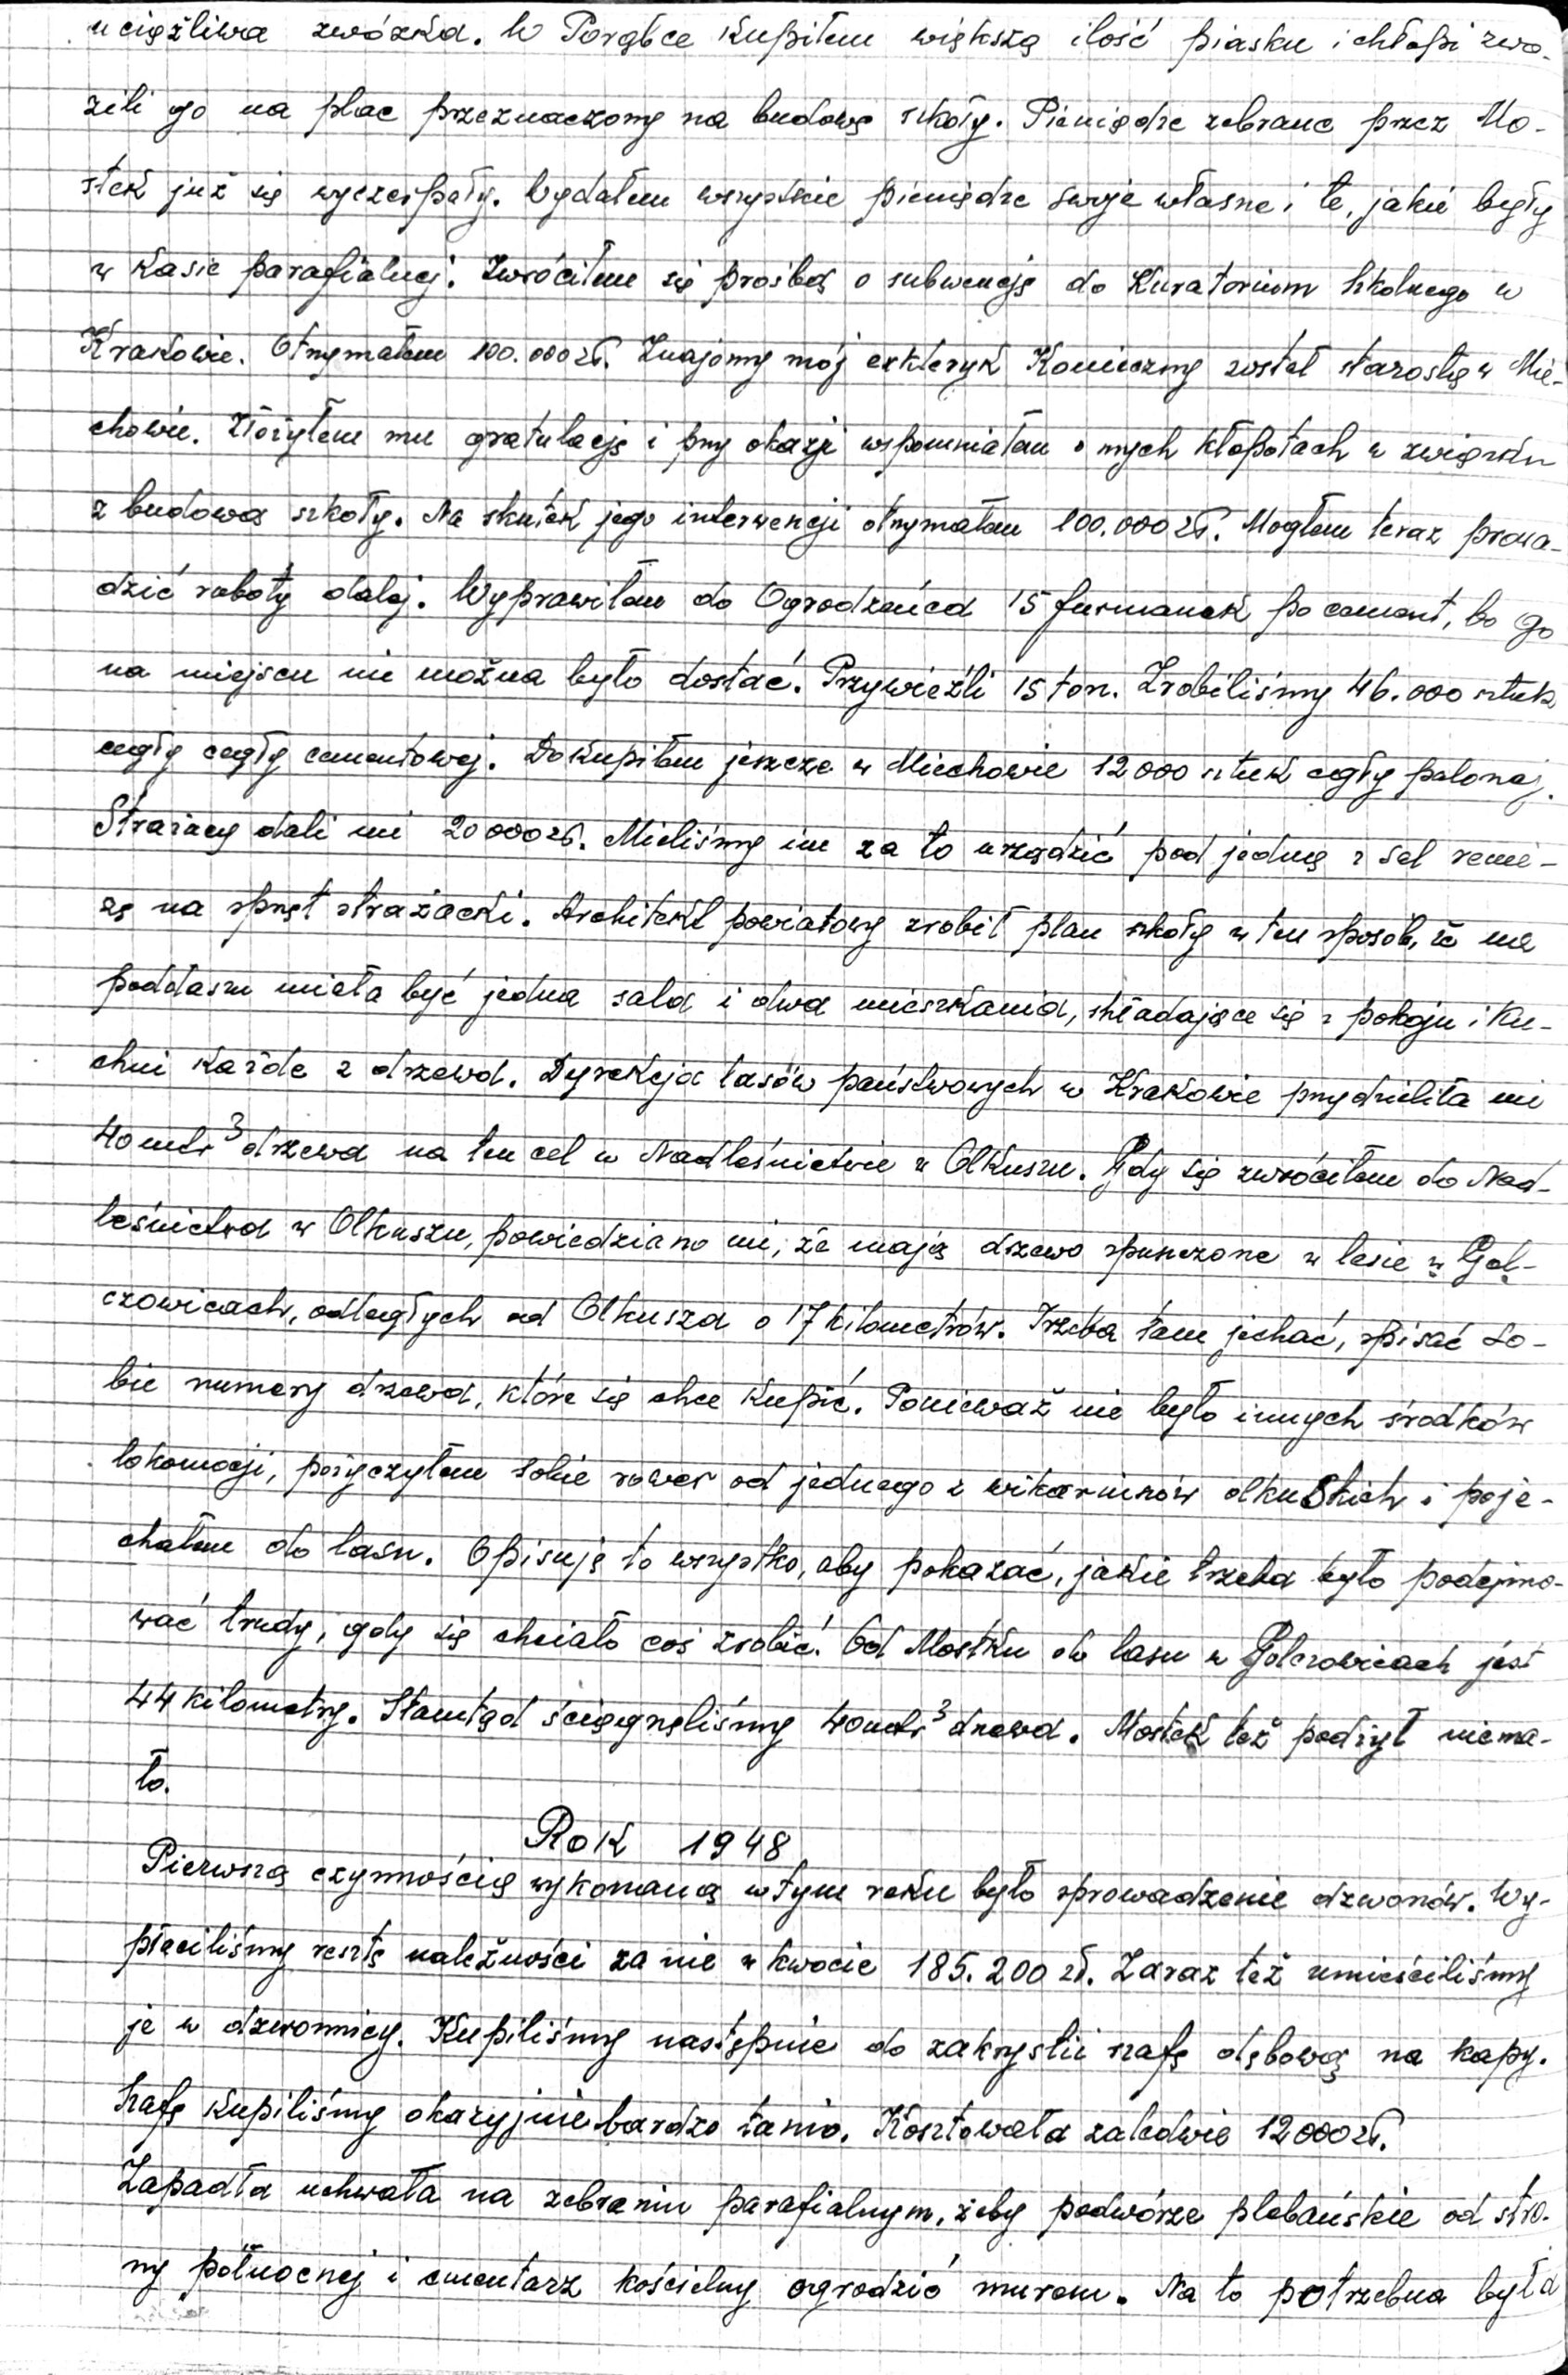 uciążliwa zwózka. W Porąbce kupiłem większą ilość piasku i chłopi zwo-
zili go na plac przeznaczony na budowę szkoły. Pieniądze zebrane przez Mo-
stek już się wyczerpały. Wydałem wszystkie pieniądze swoje własne i te, jakie były
w kasie parafialnej. Zwróciłem się prośbą o subwencję do Kuratorium Szkolnego w
Krakowie. Otrzymałem 100.000 zł. Znajomy mój exkleryk Konieczny został starostą w Mie-
chowie. Złożyłem mu gratulację i przy okazji wspomniałem o mych kłopotach w związku
z budową szkoły. Na skutek jego interwencji otrzymałem 100.000 zł. Mogłem teraz prowa-
dzić roboty dalej. Wyprawiłem do Ogrodzieńca 15 furmanek po cement, bo go
na miejscu nie można było dostać. Przywieźli 15 ton. Zrobiliśmy 46.000 sztuk
cegły cegły cementowej. Dokupiłem jeszcze w Miechowie 12000 sztuk cegły palonej.
Strażacy dali mi 20000 zł. Mieliśmy im za to urządzić pod jedną z sal remi-
zę na sprzęt strażacki. Architekt powiatowy zrobił plan szkoły w ten sposób, że na
poddaszu miała być jedna sala i dwa mieszkania, składające się z pokoju i ku-
chni każde z drzewa. Dyrekcja lasów państwowych w Krakowie przydzieliła mi
40 mtr³ drzewa na ten cel w Nadleśnictwie w Olkuszu. Gdy się zwróciłem do Nad-
leśnictwa w Olkuszu, powiedziano mi, że mają drzewo spuszczone w lesie w Gol-
czowicach, odległych od Olkusza o 17 kilometrów. Trzeba tam jechać, spisać so-
bie numery drzewa, które się chce kupić. Ponieważ nie było innych środków
lokomocji, pożyczyłem sobie rower od jednego z wikariuszów olkuskich i poje-
chałem do lasu. Opisuję to wszystko, aby pokazać, jakie trzeba było podejmo-
wać trudy, gdy się chciało coś zrobić. Od Mostku do lasu w Golczowicach jest
44 kilometry. Stamtąd ściągnęliśmy 40 mtr³ drzewa. Mostek też podżył niema-
ło.
Rok 1948
Pierwszą czynnością wykonaną w tym roku było sprowadzenie dzwonów. Wy-
płaciliśmy resztę należności za nie w kwocie 185.200 zł. Zaraz też umieściliśmy
je w dzwonnicy. Kupiliśmy następnie do zakrystii szafę dębową na kapy.
Szafę kupiliśmy okazyjnie bardzo tanio. Kosztowała zaledwie 12000 zł.
Zapadła uchwała na zebraniu parafialnym, żeby podwórze plebańskie od stro-
ny północnej i cmentarz kościelny ogrodzić murem. Na to potrzebna była